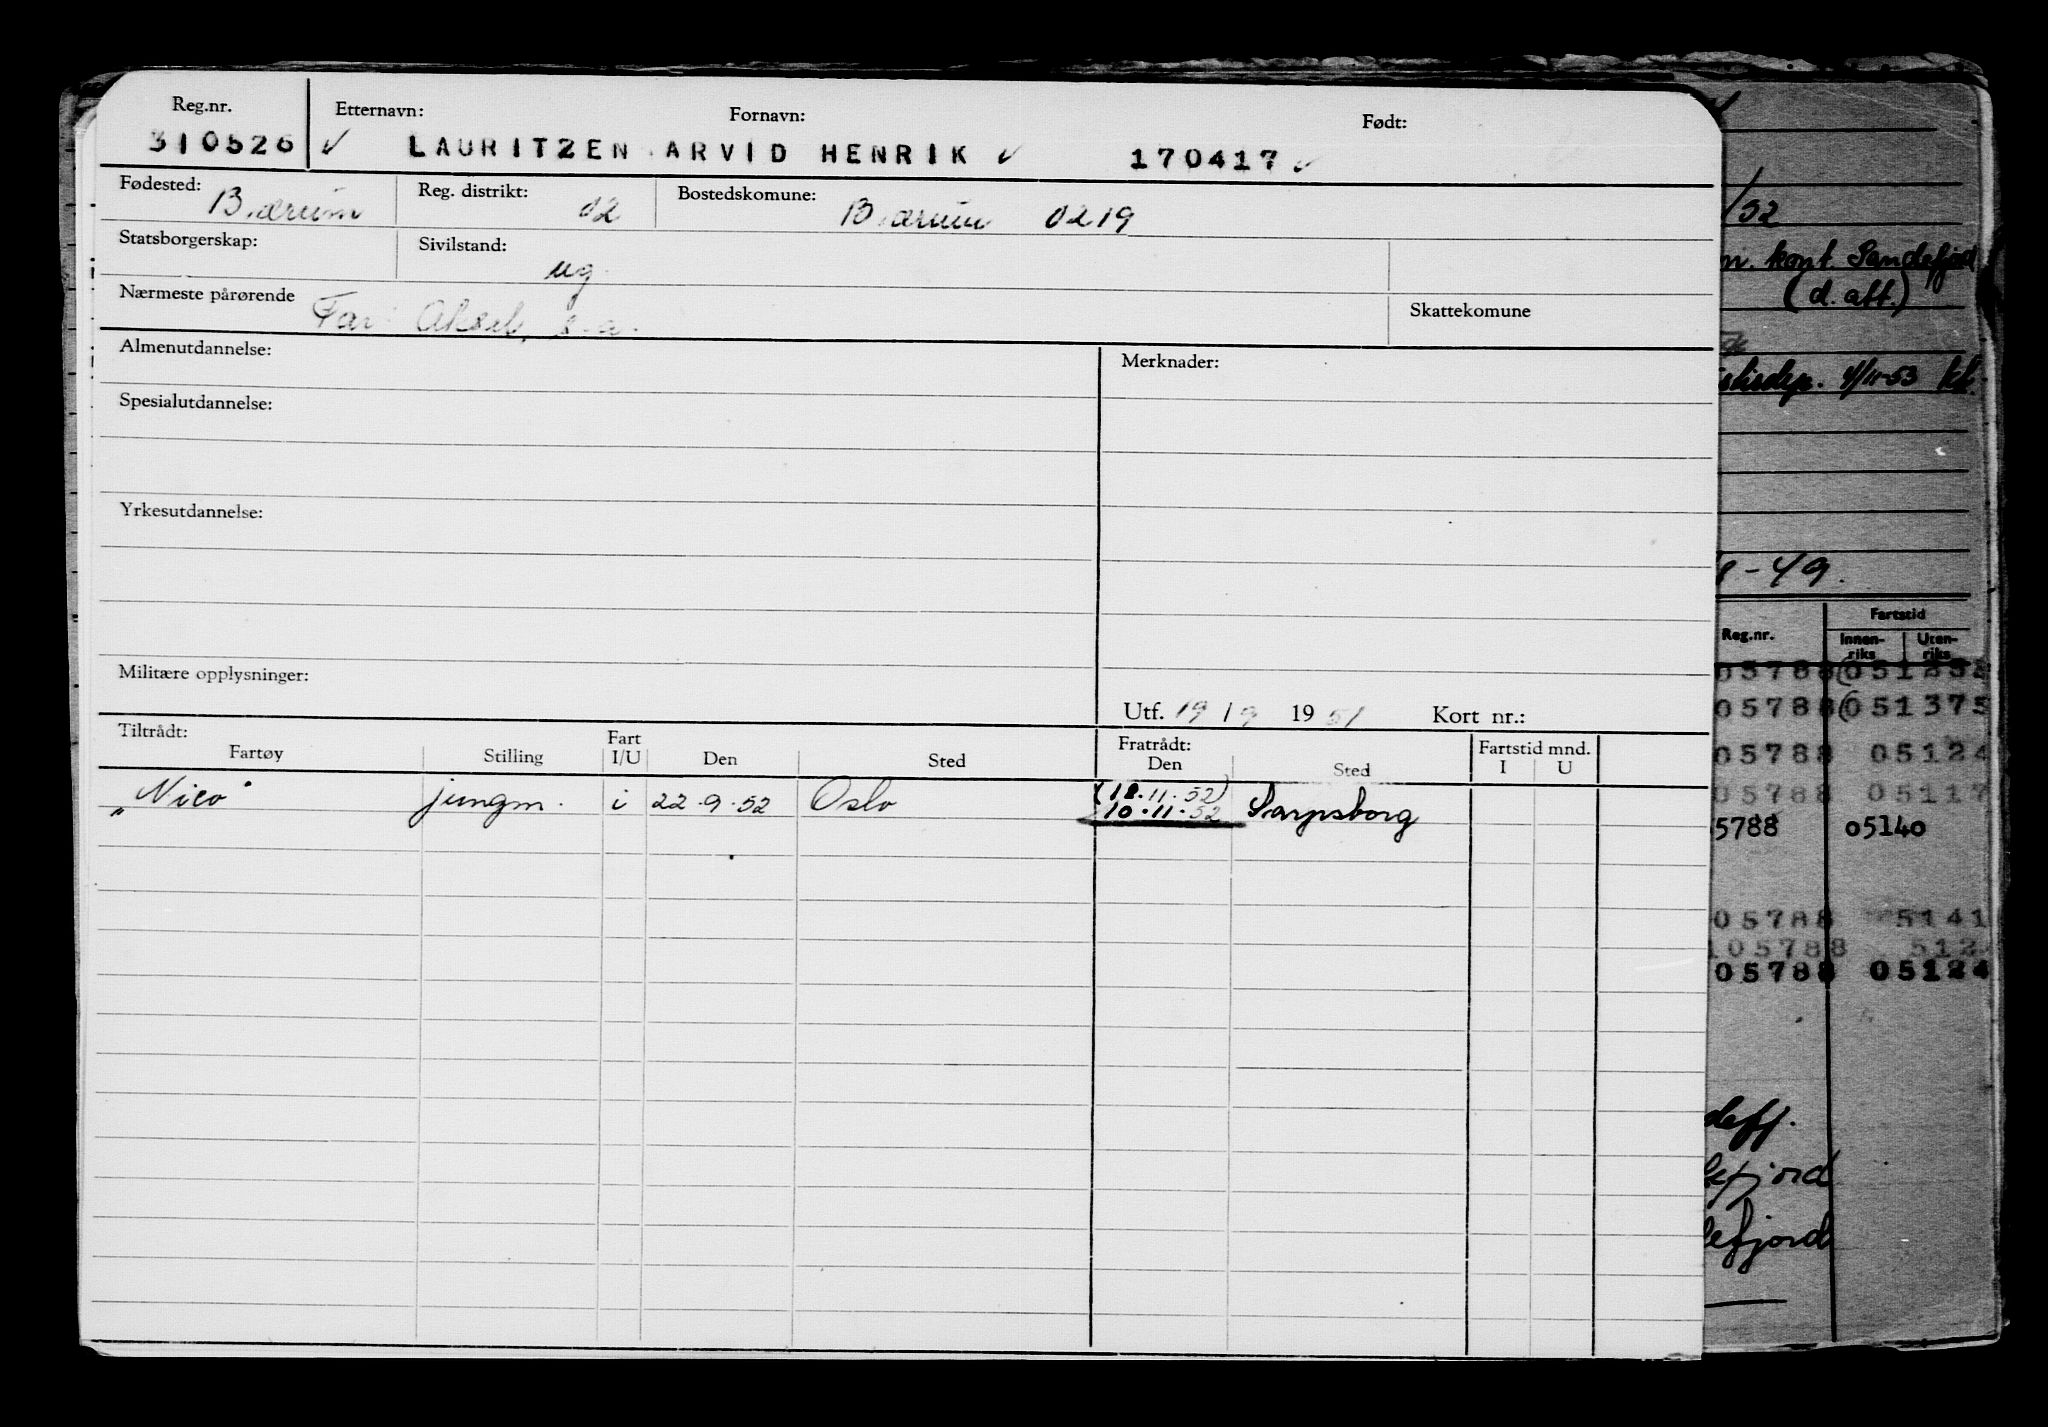 Reg.nr. Etternavn: Fornavn: Født:
310526 ✓ LAURITZEN ARVID HENRIK ✓ 170417 ✓
Fødested: Bærum Reg. distrikt: 02 Bostedskomune: Bærum 0219
Statsborgerskap: Sivilstand: ug.
Nærmeste pårørende Far: Aksel, s.a. Skattekomune
Almenutdannelse: Merknader:
Spesialutdannelse:
Yrkesutdannelse:
Militære opplysninger:
Utf. 19/9 1951 Kort nr.:
Tiltrådt: Fart Fratrådt: Fartstid mnd.
Fartøy Stilling I/U Den Sted Den Sted I U
"Nico" jungm. i 22.9.52 Oslo (18.11.52)
10.11.52 Sarpsborg
/52
kont. Sandefjord
(d. aft.)
4/11-53
8-49.
Reg.nr. Fartstid
Innen-riks Uten-riks
05788
05788 (051375
05788 05124
05788 05117
5788 05140
05788 5141
105788 512
05788 05124
defj.
efjord
efjord